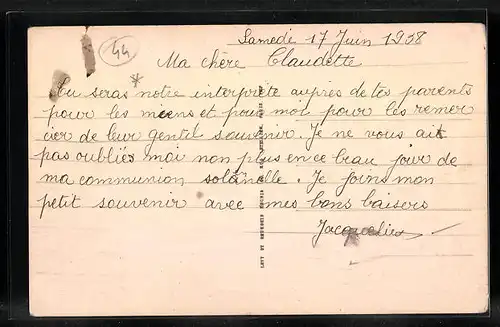 44
Samedi 17 Juin 1938
Ma chère Claudette
Tu seras notre interprète auprès de tes parents
pour les miens et pour moi pour les remer
cier de leur gentil souvenir. Je ne vous ait
pas oubliés moi non plus en ce beau jour de
ma communion solanelle. Je joins mon
petit souvenir avec mes bons baisers
Jacqueline
LEVY ET NEURDEIN REUNIS